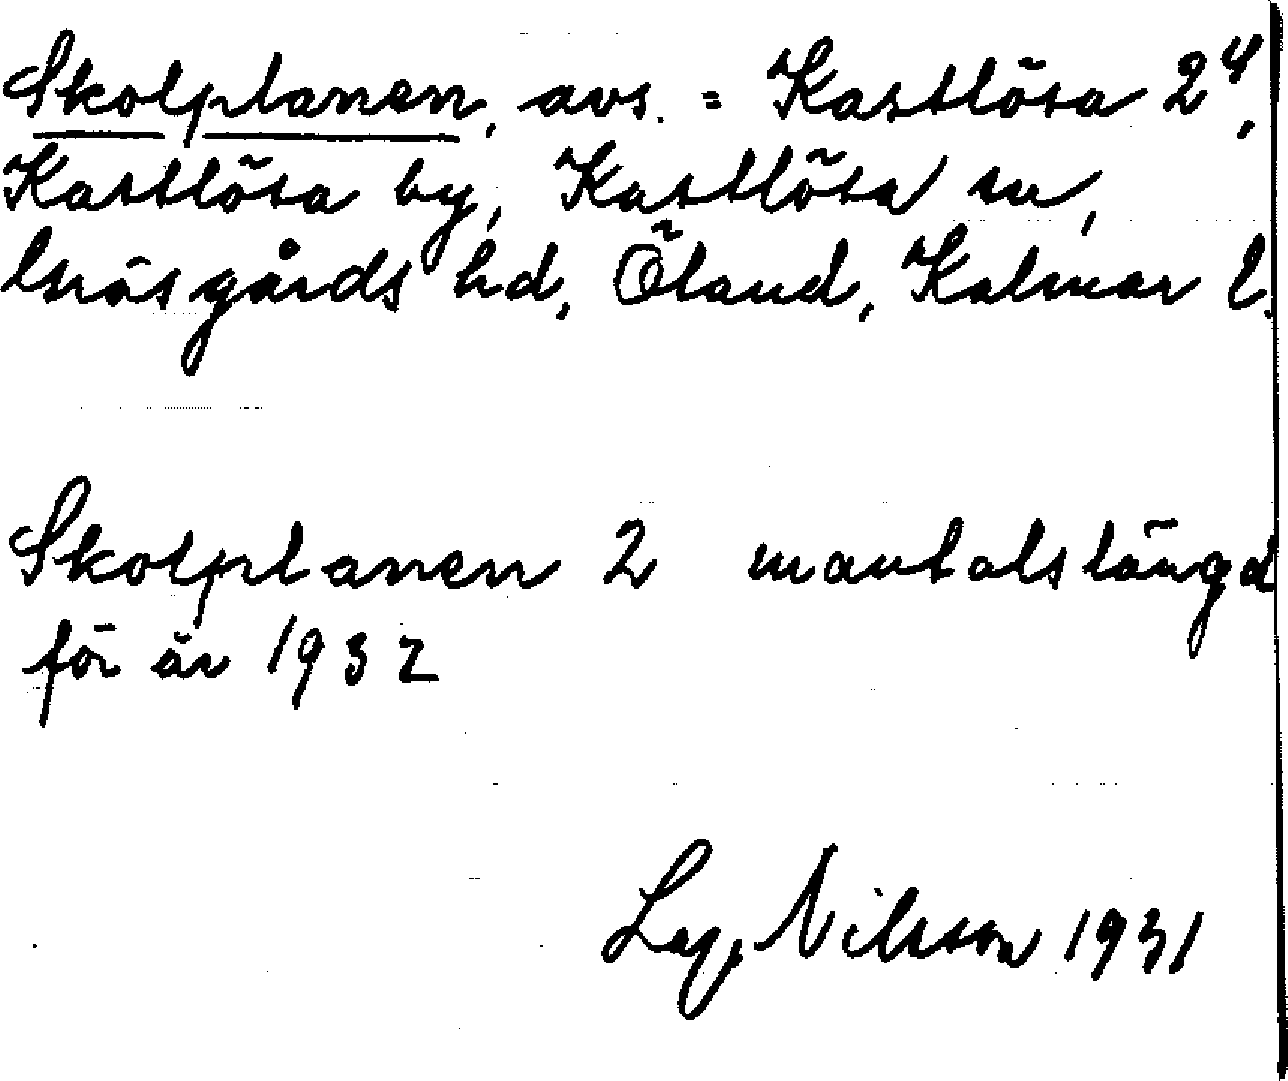 Skolplanen, avs. = Kastlösa 2⁴,
Kastlösa by, Kastlösa sn,
Gräsgårds hd, Öland, Kalmar l.
Skolplanen 2 mantalslängd
för år 1932
Lag. Nilsson 1931